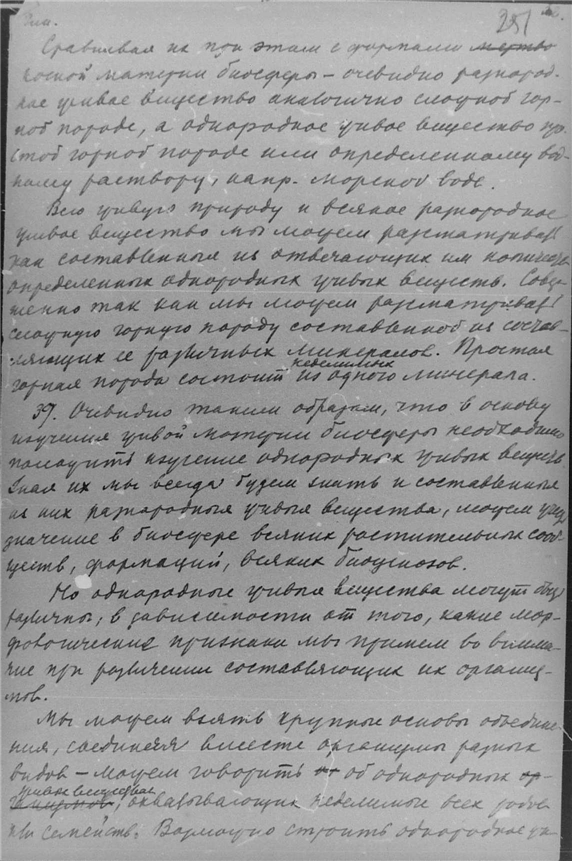 251
Сравнивая их при этом с формами мертво
косной материи биосферы – очевидно разнород-
ное живое вещество аналогично сложной гор-
ной породе, а однородное живое вещество про-
стой горной породе или определенному вод-
ному раствору, напр. морской воде.
Всю живую природу и всякое разнородное
живое вещество мы можем рассматривать
как составленные из отвечающих им
определенных однородных живых веществ. Совер-
шенно так как мы можем рассматривать
сложную горную породу составленной из состав-
ляющих ее различных минералов. Простая
неделимых
горная порода состоит из одного минерала.
39. Очевидно таким образом, что в основу
изучения живой материи биосферы необходимо
положить изучение однородных живых веществ.
Зная их мы всегда будем знать и составленные
из них разнородные живые вещества, можем
значение в биосфере всяких растительных сооб-
ществ, формаций, всяких биоценозов.
Но однородные живые вещества могут быть
различны, в зависимости от того, какие мор-
фологические признаки мы примем во внима-
ние при различении составляющих их организ-
мов.
Мы можем взять крупные основы объедине-
ния, соединяя вместе организмы разных
видов – можем говорить об однородных ор-
живых веществах
ганизмов, охватывающих неделимые всех родов
или семейств. Возможно строить однородное жи-